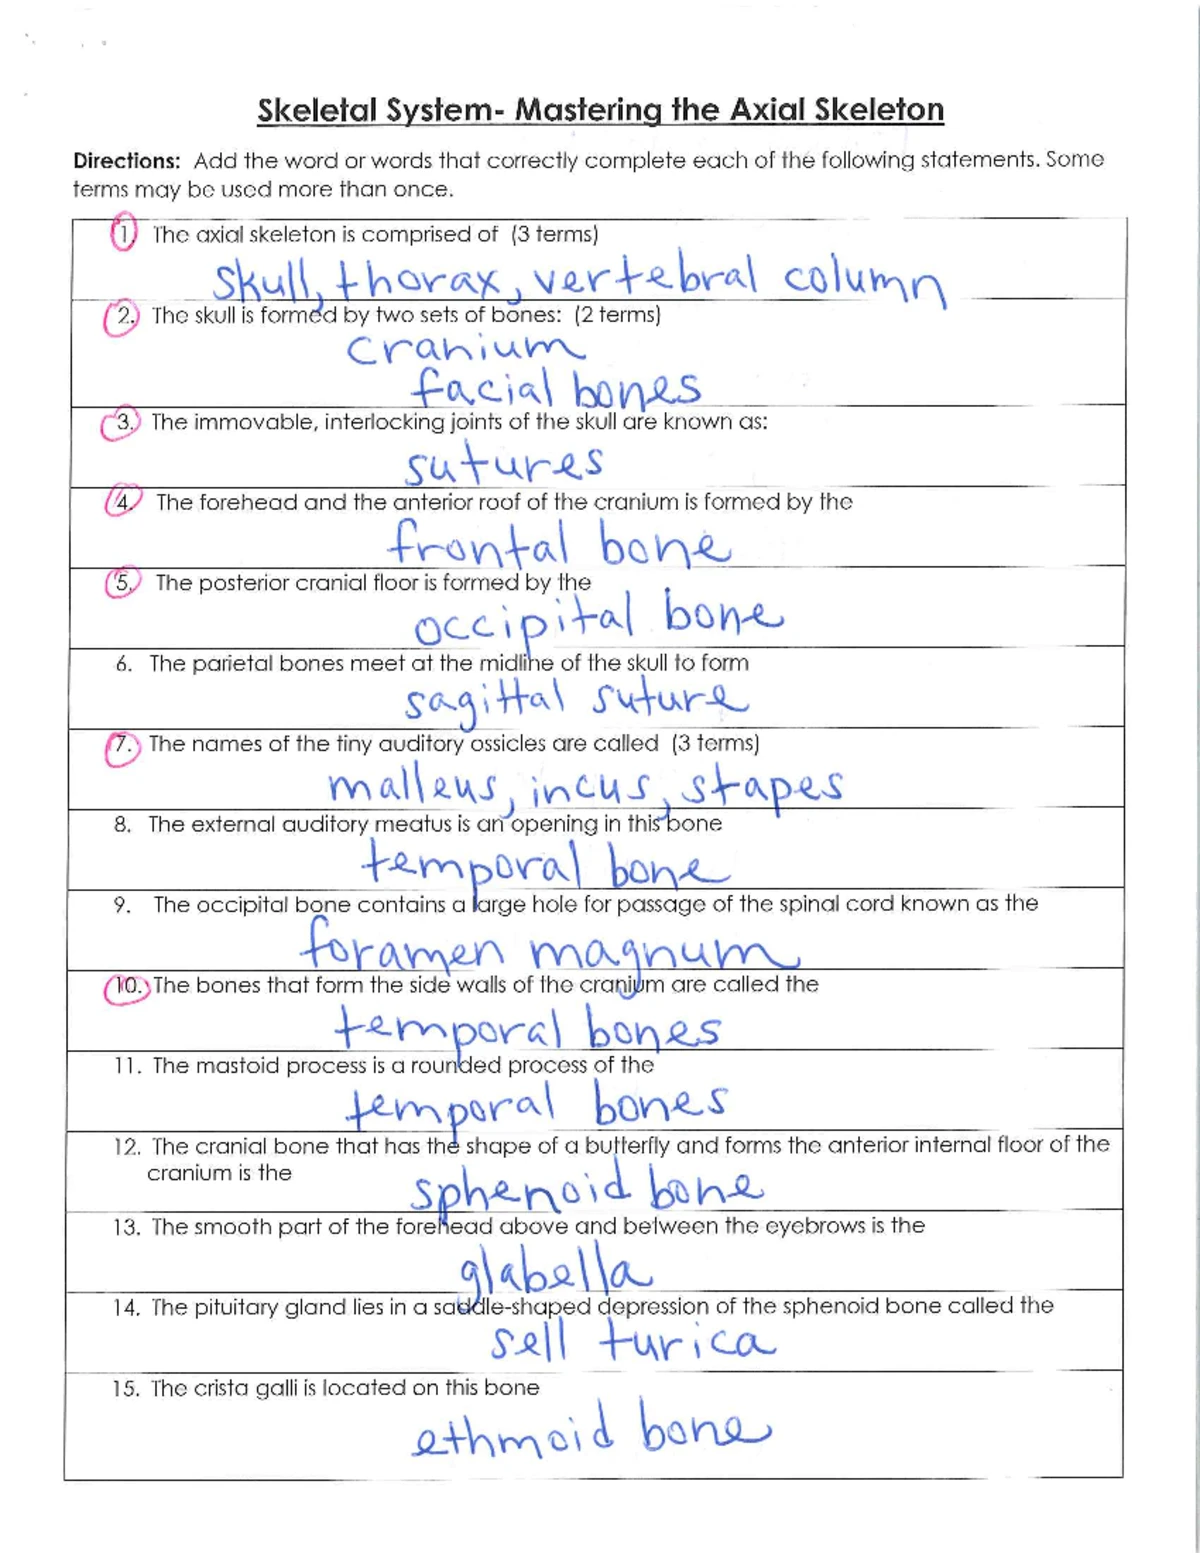 Skeletal System- Mastering the Axial Skeleton
Directions: Add the word or words that correctly complete each of the following statements. Some
terms may be used more than once.
1. The axial skeleton is comprised of (3 terms)
skull, thorax, vertebral column
2. The skull is formed by two sets of bones: (2 terms)
cranium
facial bones
3. The immovable, interlocking joints of the skull are known as:
sutures
4. The forehead and the anterior roof of the cranium is formed by the
frontal bone
5. The posterior cranial floor is formed by the
occipital bone
6. The parietal bones meet at the midline of the skull to form
sagittal suture
7. The names of the tiny auditory ossicles are called (3 terms)
malleus, incus, stapes
8. The external auditory meatus is an opening in this bone
temporal bone
9. The occipital bone contains a large hole for passage of the spinal cord known as the
foramen magnum
10. The bones that form the side walls of the cranium are called the
temporal bones
11. The mastoid process is a rounded process of the
temporal bones
12. The cranial bone that has the shape of a butterfly and forms the anterior internal floor of the
cranium is the
sphenoid bone
13. The smooth part of the forehead above and between the eyebrows is the
glabella
14. The pituitary gland lies in a saddle-shaped depression of the sphenoid bone called the
sell turica
15. The crista galli is located on this bone
ethmoid bone